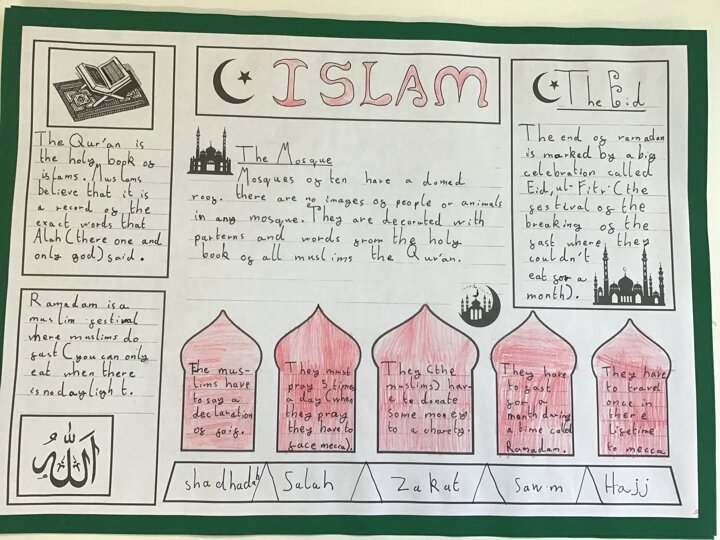 ISLAM
The Qur'an is
the holy book of
islams. Muslams
believe that it is
a record of the
exact words that
Alah (there one and
only god) said.
Ramadam is a
muslim festival
where muslims do
fast (you can only
eat when there
is no daylight.
الله
The Mosque
Mosques often have a domed
roof. there are no images of people or animals
in any mosque. They are decorated with
patterns and words from the holy
book of all muslims the Qur'an.
The Eid
The end of ramadan
is marked by a big
celebration called
Eid, ul-Fitr (the
festival of the
breaking of the
fast where they
couldn't
eat for a
month).
the mus-
lims have
to say a
declaration
of faif.
They must
pray 5 times
a day (when
they pray
they have to
face mecca).
They (the
muslims) hav-
e to donate
some money
to a charety.
They have
to fast
for a
month during
a time called
Ramadam.
They have
to travel
once in
there
lifetime
to mecca
shadhadah
Salah
Zakat
Sawm
Hajj